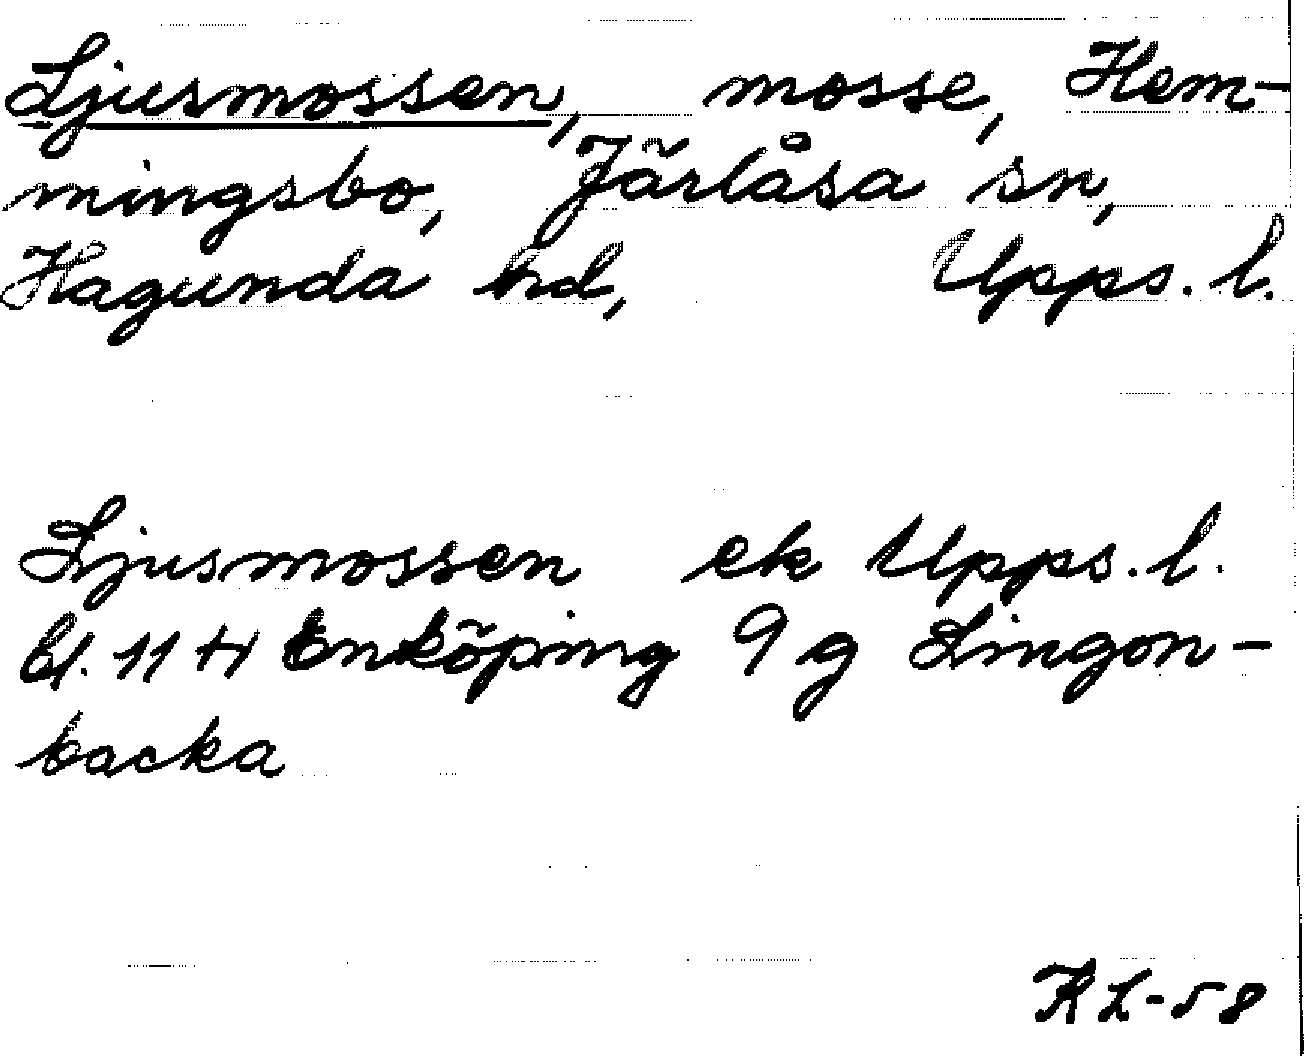 Ljusmossen, mosse, Hem-
mingsbo, Järlåsa sn,
Hagunda hd, Upps. l.
Ljusmossen ek Upps. l.
bl. 11 H Enköping 9 g Lingon-
backa
KL-58